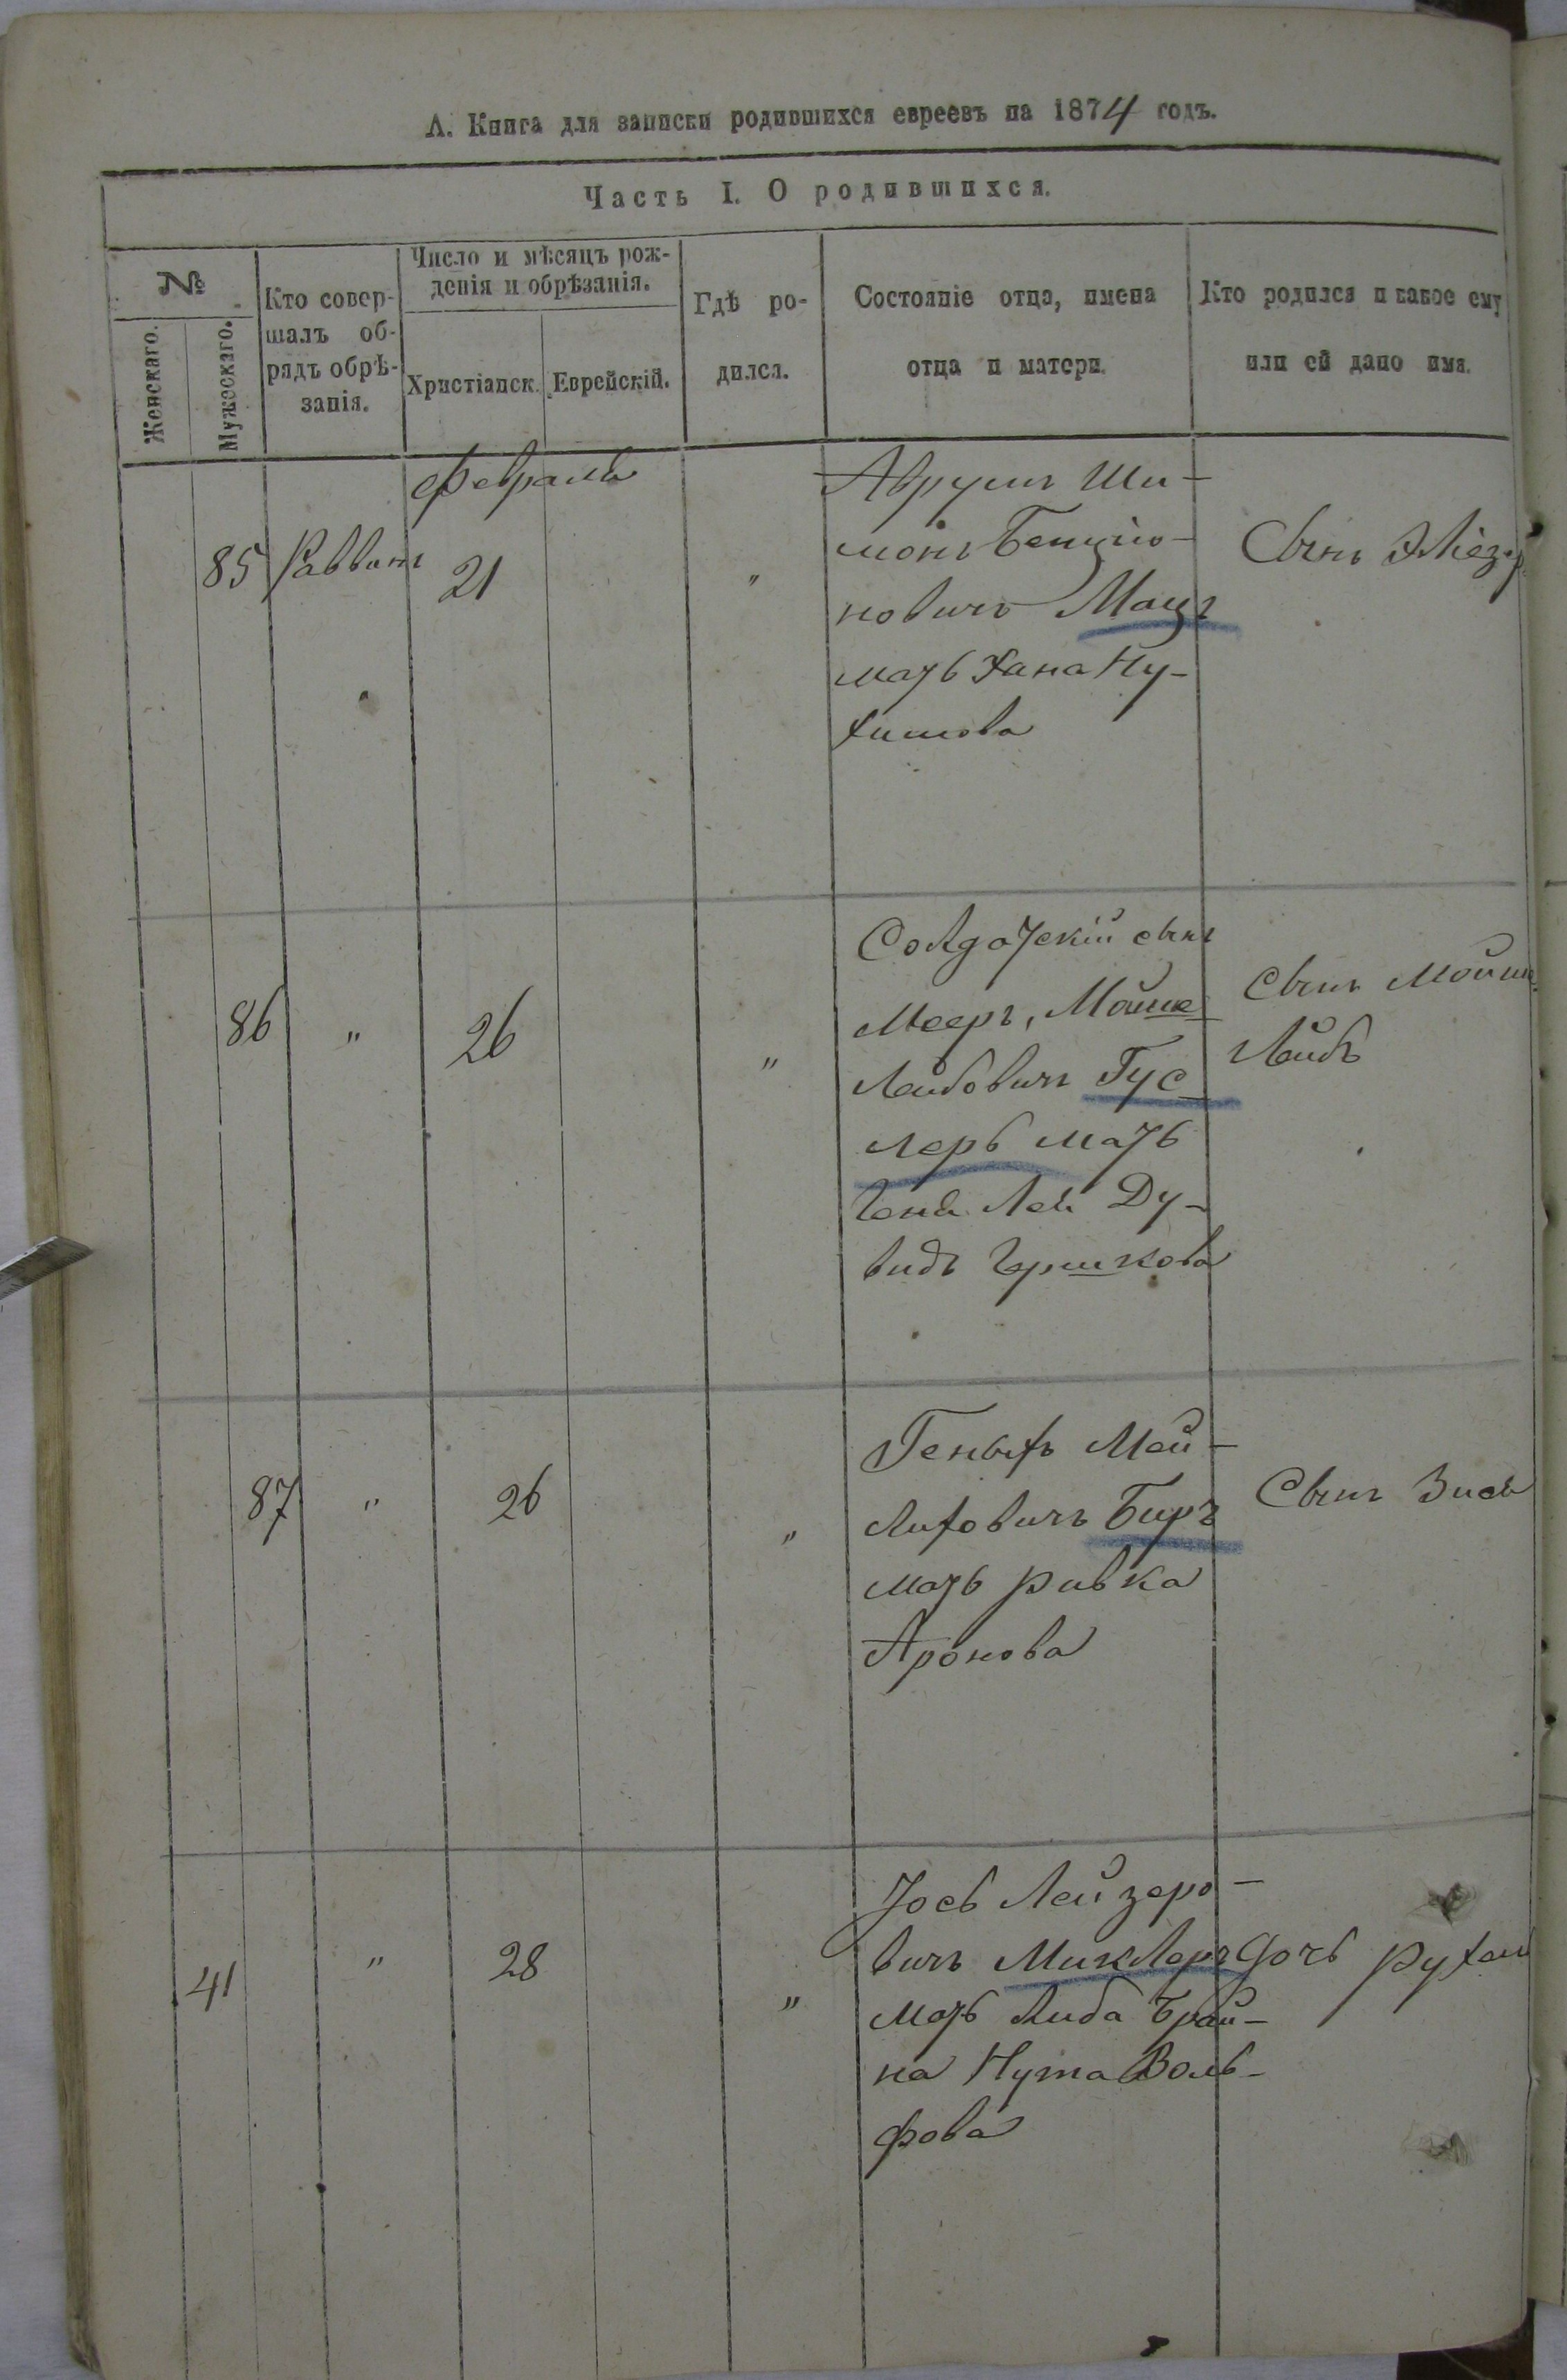 А. Книга для записки родившихся евреевъ на 1874 годъ.
Часть I. О родившихся.
№
Женскаго.
Мужескаго.
Кто совер-
шалъ об-
рядъ обрѣ-
занія.
Число и мѣсяцъ рож-
денія и обрѣзанія.
Христіанск.
Еврейскій.
Гдѣ ро-
дился.
Состояніе отца, имена
отца и матери.
Кто родился и какое ему
или ей дано имя.
Февраль
85
Раввинъ
21
"
Аврумъ Ши-
монъ Бенціо-
новичъ Мацъ
мать Хана Ну-
химова
Сынъ Эліезеръ
86
"
26
"
Солдатскій сынъ
Мееръ, Мойше
Лейбовичъ Гус
леръ мать
Лея Ду-
видъ Гершкова
Сынъ Мойше
Лейбъ
87
"
26
"
Геныхъ Мей-
лиховичъ Биръ
мать Ривка
Аронова
Сынъ Зись
41
"
28
"
Іось Лейзеро-
вичъ Миклеръ
мать Либа Брай-
на Нута Воль-
фова
Дочь Рухля